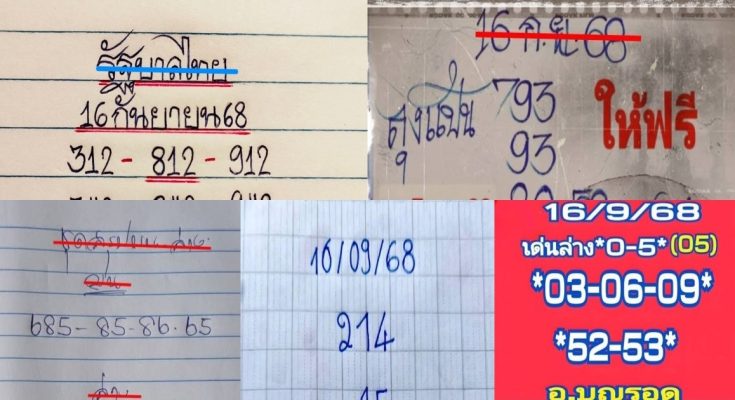 รัฐบาลไทย
16 กันยายน 68
312 - 812 - 912
16 ก.ย. 68
793
ให้ฟรี
93
บน
685 - 85 - 86 . 65
ล่าง
16/09/68
214
15
16/9/68
เด่นล่าง*0-5*(05)
*03-06-09*
*52-53*
อ.มุณรอด